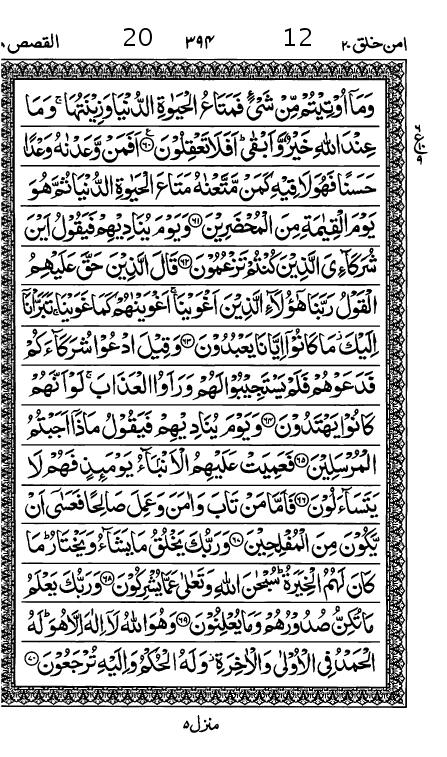 امن خلق ۲۰ 12 ۳۹۴ 20 القصص
وَمَآ اُوْتِيْتُمْ مِّنْ شَىْءٍ فَمَتَاعُ الْحَيٰوةِ الدُّنْيَا وَزِيْنَتُهَا ۚ وَمَا
عِنْدَ اللّٰهِ خَيْرٌ وَّاَبْقٰى ؕ اَفَلَا تَعْقِلُوْنَ ﴿۶۰﴾ اَفَمَنْ وَّعَدْنٰهُ وَعْدًا
حَسَنًا فَهُوَ لَاقِيْهِ كَمَنْ مَّتَّعْنٰهُ مَتَاعَ الْحَيٰوةِ الدُّنْيَا ثُمَّ هُوَ
يَوْمَ الْقِيٰمَةِ مِنَ الْمُحْضَرِيْنَ ﴿۶۱﴾ وَيَوْمَ يُنَادِيْهِمْ فَيَقُوْلُ اَيْنَ
شُرَكَآءِىَ الَّذِيْنَ كُنْتُمْ تَزْعُمُوْنَ ﴿۶۲﴾ قَالَ الَّذِيْنَ حَقَّ عَلَيْهِمُ
الْقَوْلُ رَبَّنَا هٰٓؤُلَآءِ الَّذِيْنَ اَغْوَيْنَا ۚ اَغْوَيْنٰهُمْ كَمَا غَوَيْنَا ۚ تَبَرَّاْنَاۤ
اِلَيْكَ ۫ مَا كَانُوْٓا اِيَّانَا يَعْبُدُوْنَ ﴿۶۳﴾ وَقِيْلَ ادْعُوْا شُرَكَآءَكُمْ
فَدَعَوْهُمْ فَلَمْ يَسْتَجِيْبُوْا لَهُمْ وَرَاَوُا الْعَذَابَ ۚ لَوْ اَنَّهُمْ
كَانُوْا يَهْتَدُوْنَ ﴿۶۴﴾ وَيَوْمَ يُنَادِيْهِمْ فَيَقُوْلُ مَاذَآ اَجَبْتُمُ
الْمُرْسَلِيْنَ ﴿۶۵﴾ فَعَمِيَتْ عَلَيْهِمُ الْاَنْۢبَآءُ يَوْمَئِذٍ فَهُمْ لَا
يَتَسَآءَلُوْنَ ﴿۶۶﴾ فَاَمَّا مَنْ تَابَ وَاٰمَنَ وَعَمِلَ صَالِحًا فَعَسٰٓى اَنْ
يَّكُوْنَ مِنَ الْمُفْلِحِيْنَ ﴿۶۷﴾ وَرَبُّكَ يَخْلُقُ مَا يَشَآءُ وَيَخْتَارُ ؕ مَا
كَانَ لَهُمُ الْخِيَرَةُ ؕ سُبْحٰنَ اللّٰهِ وَتَعٰلٰى عَمَّا يُشْرِكُوْنَ ﴿۶۸﴾ وَرَبُّكَ يَعْلَمُ
مَا تُكِنُّ صُدُوْرُهُمْ وَمَا يُعْلِنُوْنَ ﴿۶۹﴾ وَهُوَ اللّٰهُ لَآ اِلٰهَ اِلَّا هُوَ ؕ لَهُ
الْحَمْدُ فِى الْاُوْلٰى وَالْاٰخِرَةِ ۫ وَلَهُ الْحُكْمُ وَاِلَيْهِ تُرْجَعُوْنَ ﴿۷۰﴾
منزل ۵